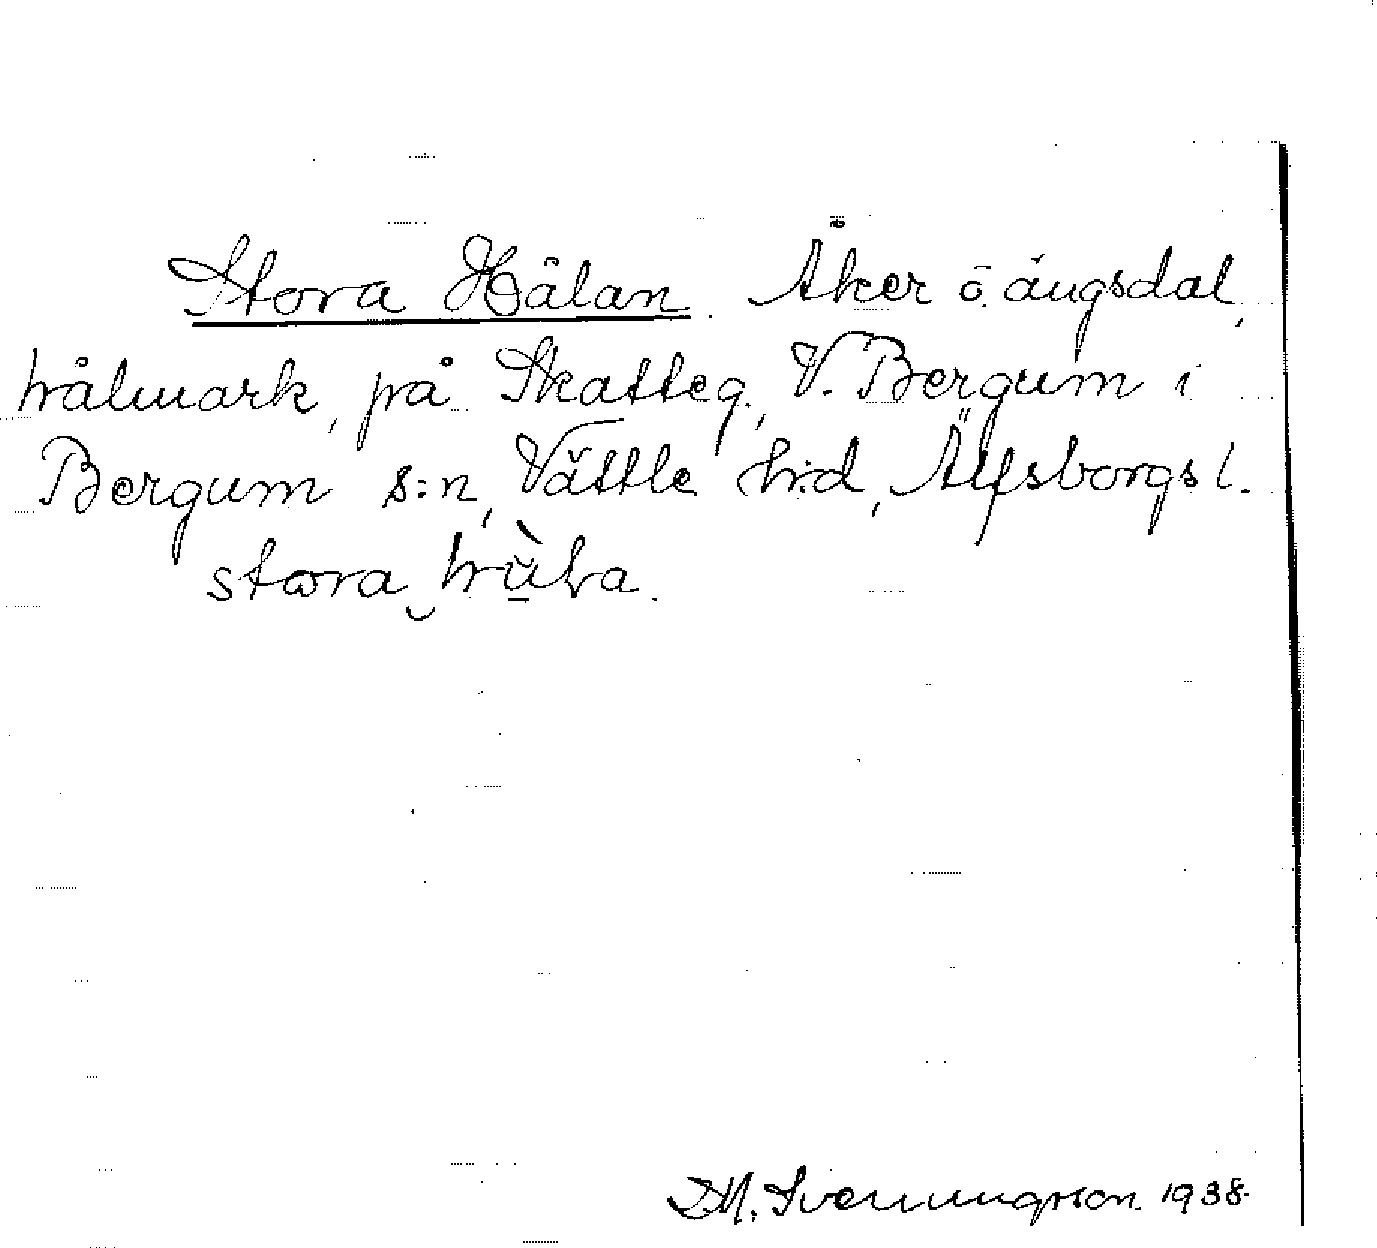 Stora Hålan. Åker o. ängsdal,
hålmark, på Skatteg., V. Bergum i
Bergum s:n, Vättle h:d, Älfsborgs l.
stora
D.M. Svenungsson. 1938.